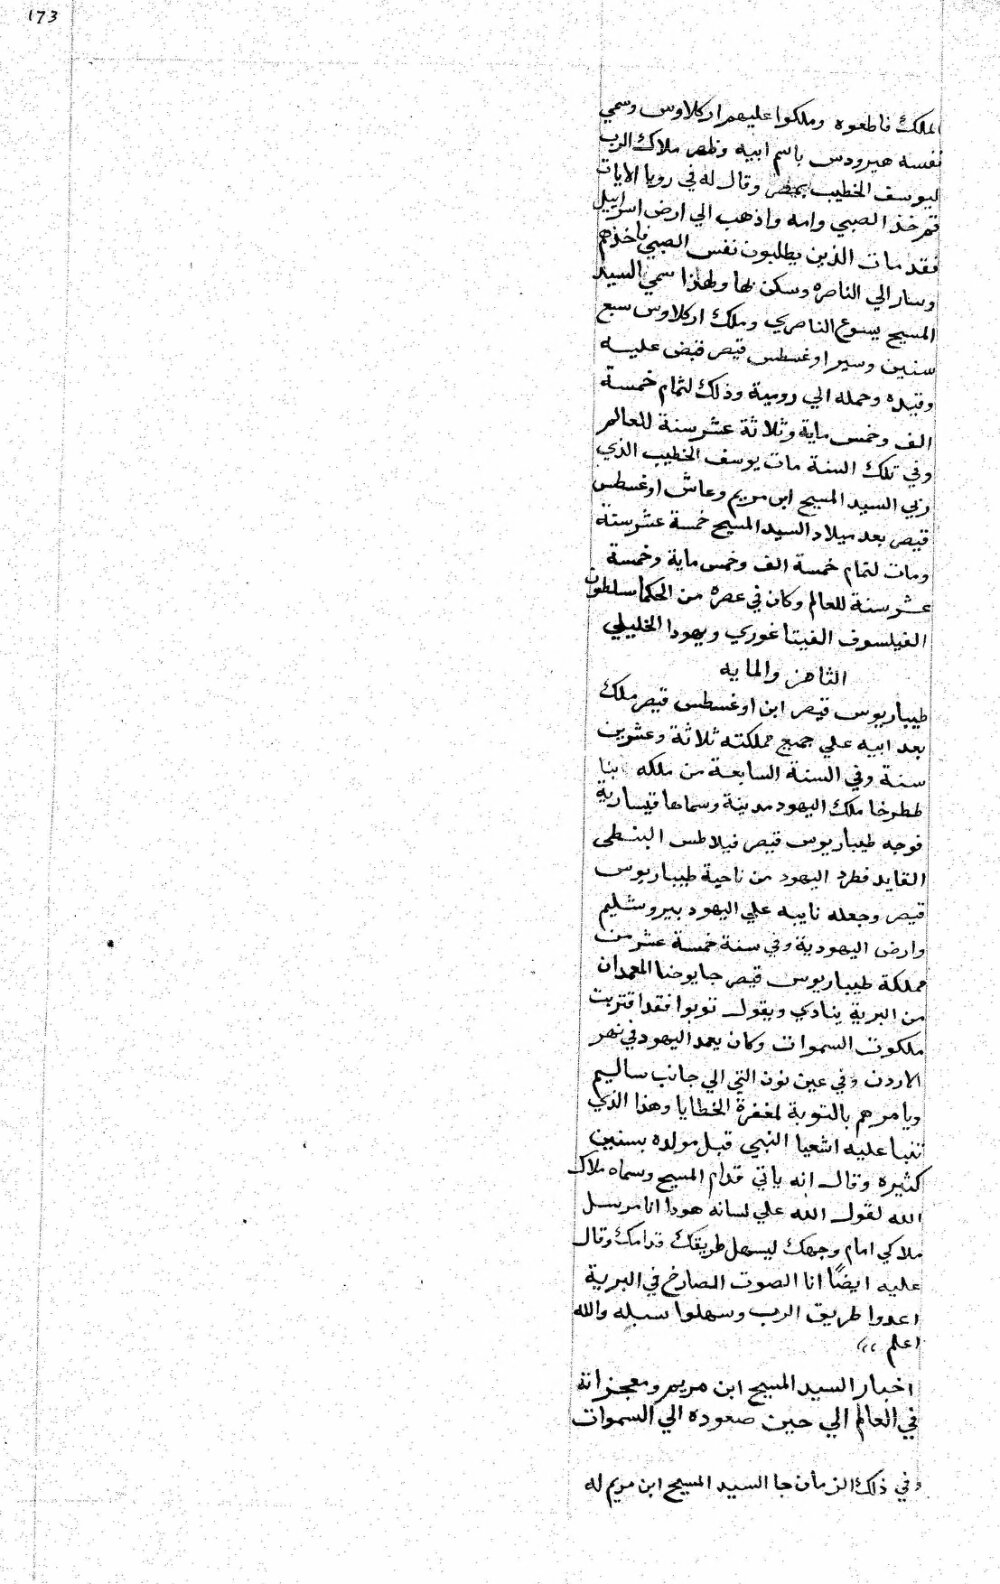 173
الملك فاطعوه وملكوا عليهم اركلاوس وسمي
نفسه هيرودس باسم ابيه وظهر ملاك الرب
ليوسف الخطيب بمصر وقال له في رويا الايات
قم خذ الصبي وامه واذهب الي ارض اسراييل
فقد مات الذين يطلبون نفس الصبي فاخذهم
وسار الي الناصره وسكن بها ولهذا سمي السيد
المسيح يسوع الناصري وملك اركلاوس سبع
سنين وسير اوغسطس قيصر قبض عليه
وقيده وحمله الي رومية وذلك لتمام خمسة
الف وخمس ماية وثلاثة عشر سنة للعالم
وفي تلك السنة مات يوسف الخطيب الذي
ربي السيد المسيح ابن مريم وعاش اوغسطس
قيصر بعد ميلاد السيد المسيح خمسة عشر سنة
ومات لتمام خمسة الف وخمس ماية وخمسة
عشر سنة للعالم وكان في عصره من الحكما سلطون
الفيلسوف الفيتاغوري ويهودا الخليلي
الثامن والمايه
طيباريوس قيصر ابن اوغسطس قيصر ملك
بعد ابيه علي جميع مملكته ثلاثة وعشرين
سنة وفي السنة السابعة من ملكه بنا
ططرخا ملك اليهود مدينة وسماها قيسارية
فوجه طيباريوس قيصر فيلاطس البنطي
القايد فطرد اليهود من ناحية طيباريوس
قيصر وجعله نايبه علي اليهود بيروشليم
وارض اليهودية وفي سنة خمسة عشر من
مملكة طيباريوس قيصر جا يوحنا المعمدان
من البرية ينادي ويقول توبوا فقد اقتربت
ملكوت السموات وكان يعمد اليهود في نهر
الاردن وفي عين نون التي الي جانب ساليم
ويامرهم بالتوبة لمغفرة الخطايا وهذا الذي
تنبا عليه اشعيا النبي قبل مولده بسنين
كثيرة وقال انه ياتي قدام المسيح وسماه ملاك
الله لقول الله علي لسانه هودا انا مرسل
ملاكي امام وجهك ليسهل طريقك قدامك وقال
عليه ايضًا انا الصوت الصارخ في البرية
اعدوا طريق الرب وسهلوا سبله والله
اعلم
اخبار السيد المسيح ابن مريم ومعجزاته
في العالم الي حين صعوده الي السموات
وفي ذلك الزمان جا السيد المسيح ابن مريم له